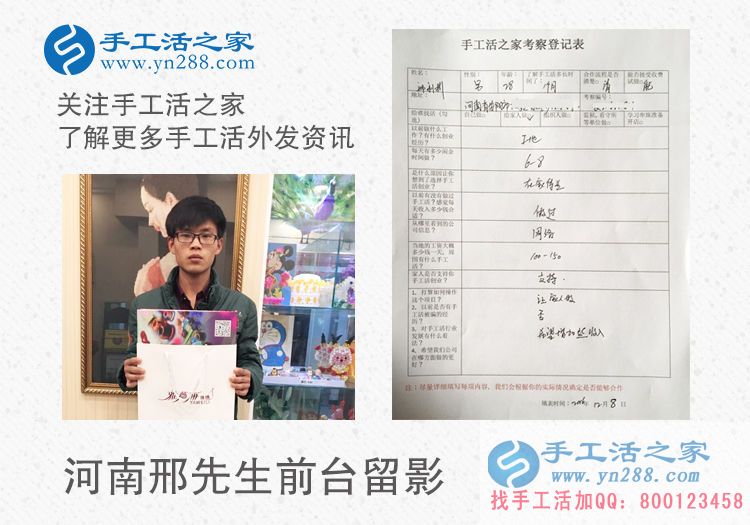 手工活之家
www.yn288.com
关注手工活之家
了解更多手工活外发资讯
手工活之家考察登记表
姓名：
性别：男
年龄：28
了解手工活多长时间了：
合作流程是否清楚：清
能否接受收费试做：能
地址：
考察编号：
给谁找活（勾选）
自己做□
给家人做
组织人做□
监狱、看守所等单位做□
学习车珠准备开店□
以前做什么工作？有什么创业经历？
工地
每天有多少闲余时间做？
6-8
是什么原因让你想到了选择手工活创业？
以前有没有做过手工活？感觉每天收入多少钱合适？
做过
从哪里看到的公司信息？
网络
当地的工资大概多少钱一天，周围有什么手工活？
100-150
家人是否支持你手工活创业？
支持
1、打算如何操作这个项目？
2、以前是否有手工活被骗的经历？
3、对手工活行业发展有什么看法？
4、希望我们公司在哪方面做的更好？
让家人做
否
希望增加些收入
注：尽量详细填写每项内容，我们会根据你的实际情况确定是否能够合作
填表时间：2016年12月8日
河南邢先生前台留影
手工活之家
www.yn288.com
找手工活加QQ：800123458